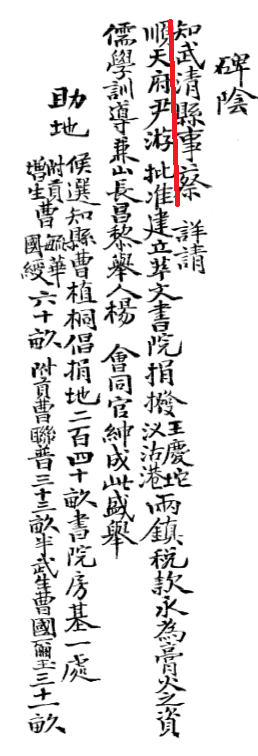 碑陰
知武清縣事蔡 詳請
順天府尹游 批准建立萃文書院捐撥王慶坨汊沽港兩鎮稅款永為膏火之資
儒學訓導兼山長昌黎舉人楊 會同官紳成此盛舉
助地
候選知縣曹植桐倡捐地二百四十畝書院房基一處
附貢增生曹毓華國綬六十畝 附貢曹聯普三十三畝半武生曹國璽三十一畝